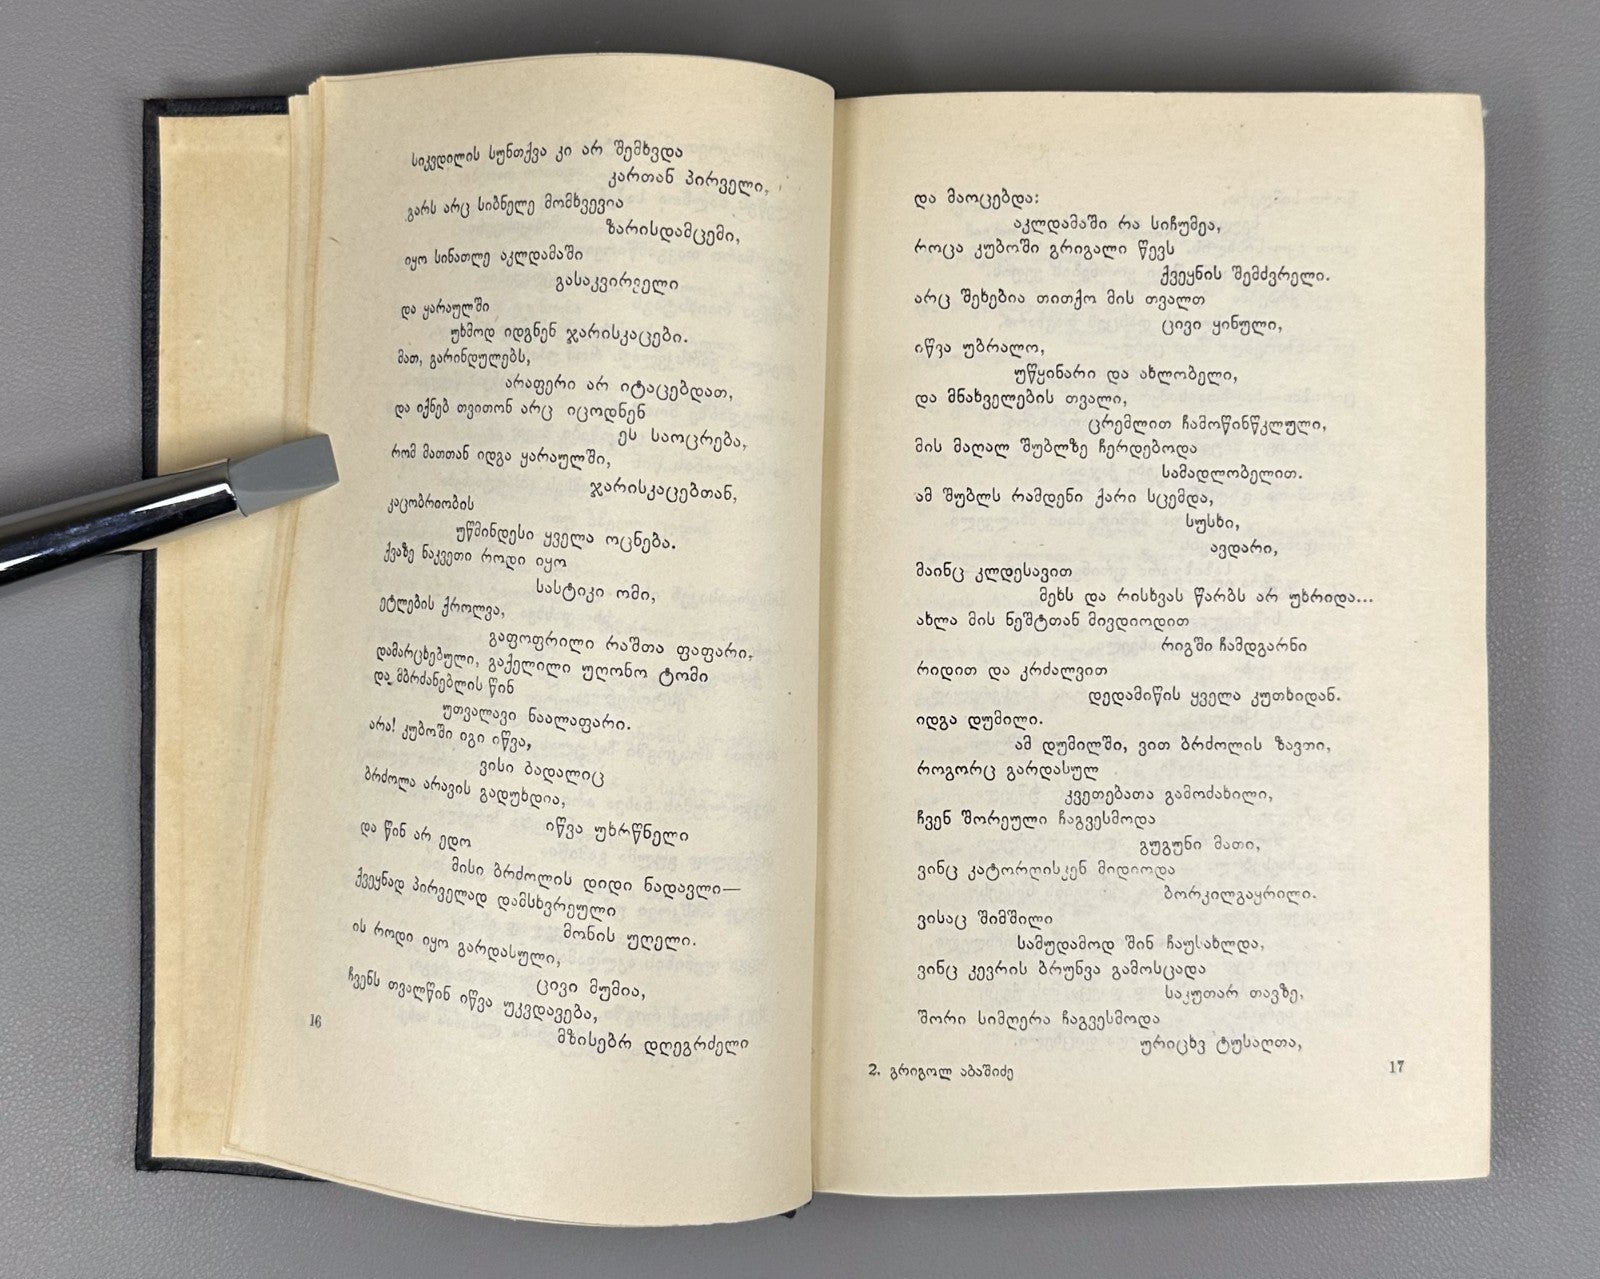 სიკვდილის სუნთქვა კი არ შემხვდა
კართან პირველი,
გარს არც სიბნელე მომხვევია
ზარისდამცემი,
იყო სინათლე აკლდამაში
გასაკვირველი
და ყარაულში
უხმოდ იდგნენ ჯარისკაცები.
მათ, გარინდულებს,
არაფერი არ იტაცებდათ,
და იქნებ თვითონ არც იცოდნენ
ეს საოცრება,
რომ მათთან იდგა ყარაულში,
ჯარისკაცებთან,
კაცობრიობის
უწმინდესი ყველა ოცნება.
ქვაზე ნაკვეთი როდი იყო
სასტიკი ომი,
ეტლების ქროლვა,
გაფოფრილი რაშთა ფაფარი,
დამარცხებული, გაქელილი უღონო ტომი
და მბრძანებლის წინ
უთვალავი ნაალაფარი.
არა! კუბოში იგი იწვა,
ვისი ბადალიც
ბრძოლა არავის გადუხდია,
იწვა უხრწნელი
და წინ არ ედო
მისი ბრძოლის დიდი ნადავლი—
ქვეყნად პირველად დამსხვრეული
მონის უღელი.
ის როდი იყო გარდასული,
ცივი მუმია,
ჩვენს თვალწინ იწვა უკვდავება,
მზისებრ დღეგრძელი
16
და მაოცებდა:
აკლდამაში რა სიჩუმეა,
როცა კუბოში გრიგალი წევს
ქვეყნის შემძვრელი.
არც შეხებია თითქო მის თვალთ
ცივი ყინული,
იწვა უბრალო,
უწყინარი და ახლობელი,
და მნახველების თვალი,
ცრემლით ჩამოწინწკლული,
მის მაღალ შუბლზე ჩერდებოდა
სამადლობელით.
ამ შუბლს რამდენი ქარი სცემდა,
სუსხი,
ავდარი,
მაინც კლდესავით
მეხს და რისხვას წარბს არ უხრიდა...
ახლა მის ნეშტთან მივდიოდით
რიგში ჩამდგარნი
რიდით და კრძალვით
დედამიწის ყველა კუთხიდან.
იდგა დუმილი.
ამ დუმილში, ვით ბრძოლის ზავთი,
როგორც გარდასულ
კვეთებათა გამოძახილი,
ჩვენ შორეული ჩაგვესმოდა
გუგუნი მათი,
ვინც კატორღისკენ მიდიოდა
ბორკილგაყრილი.
ვისაც შიმშილი
სამუდამოდ შინ ჩაუსახლდა,
ვინც კევრის ბრუნვა გამოსცადა
საკუთარ თავზე,
შორი სიმღერა ჩაგვესმოდა
ურიცხვ ტუსაღთა,
2. გრიგოლ აბაშიძე
17